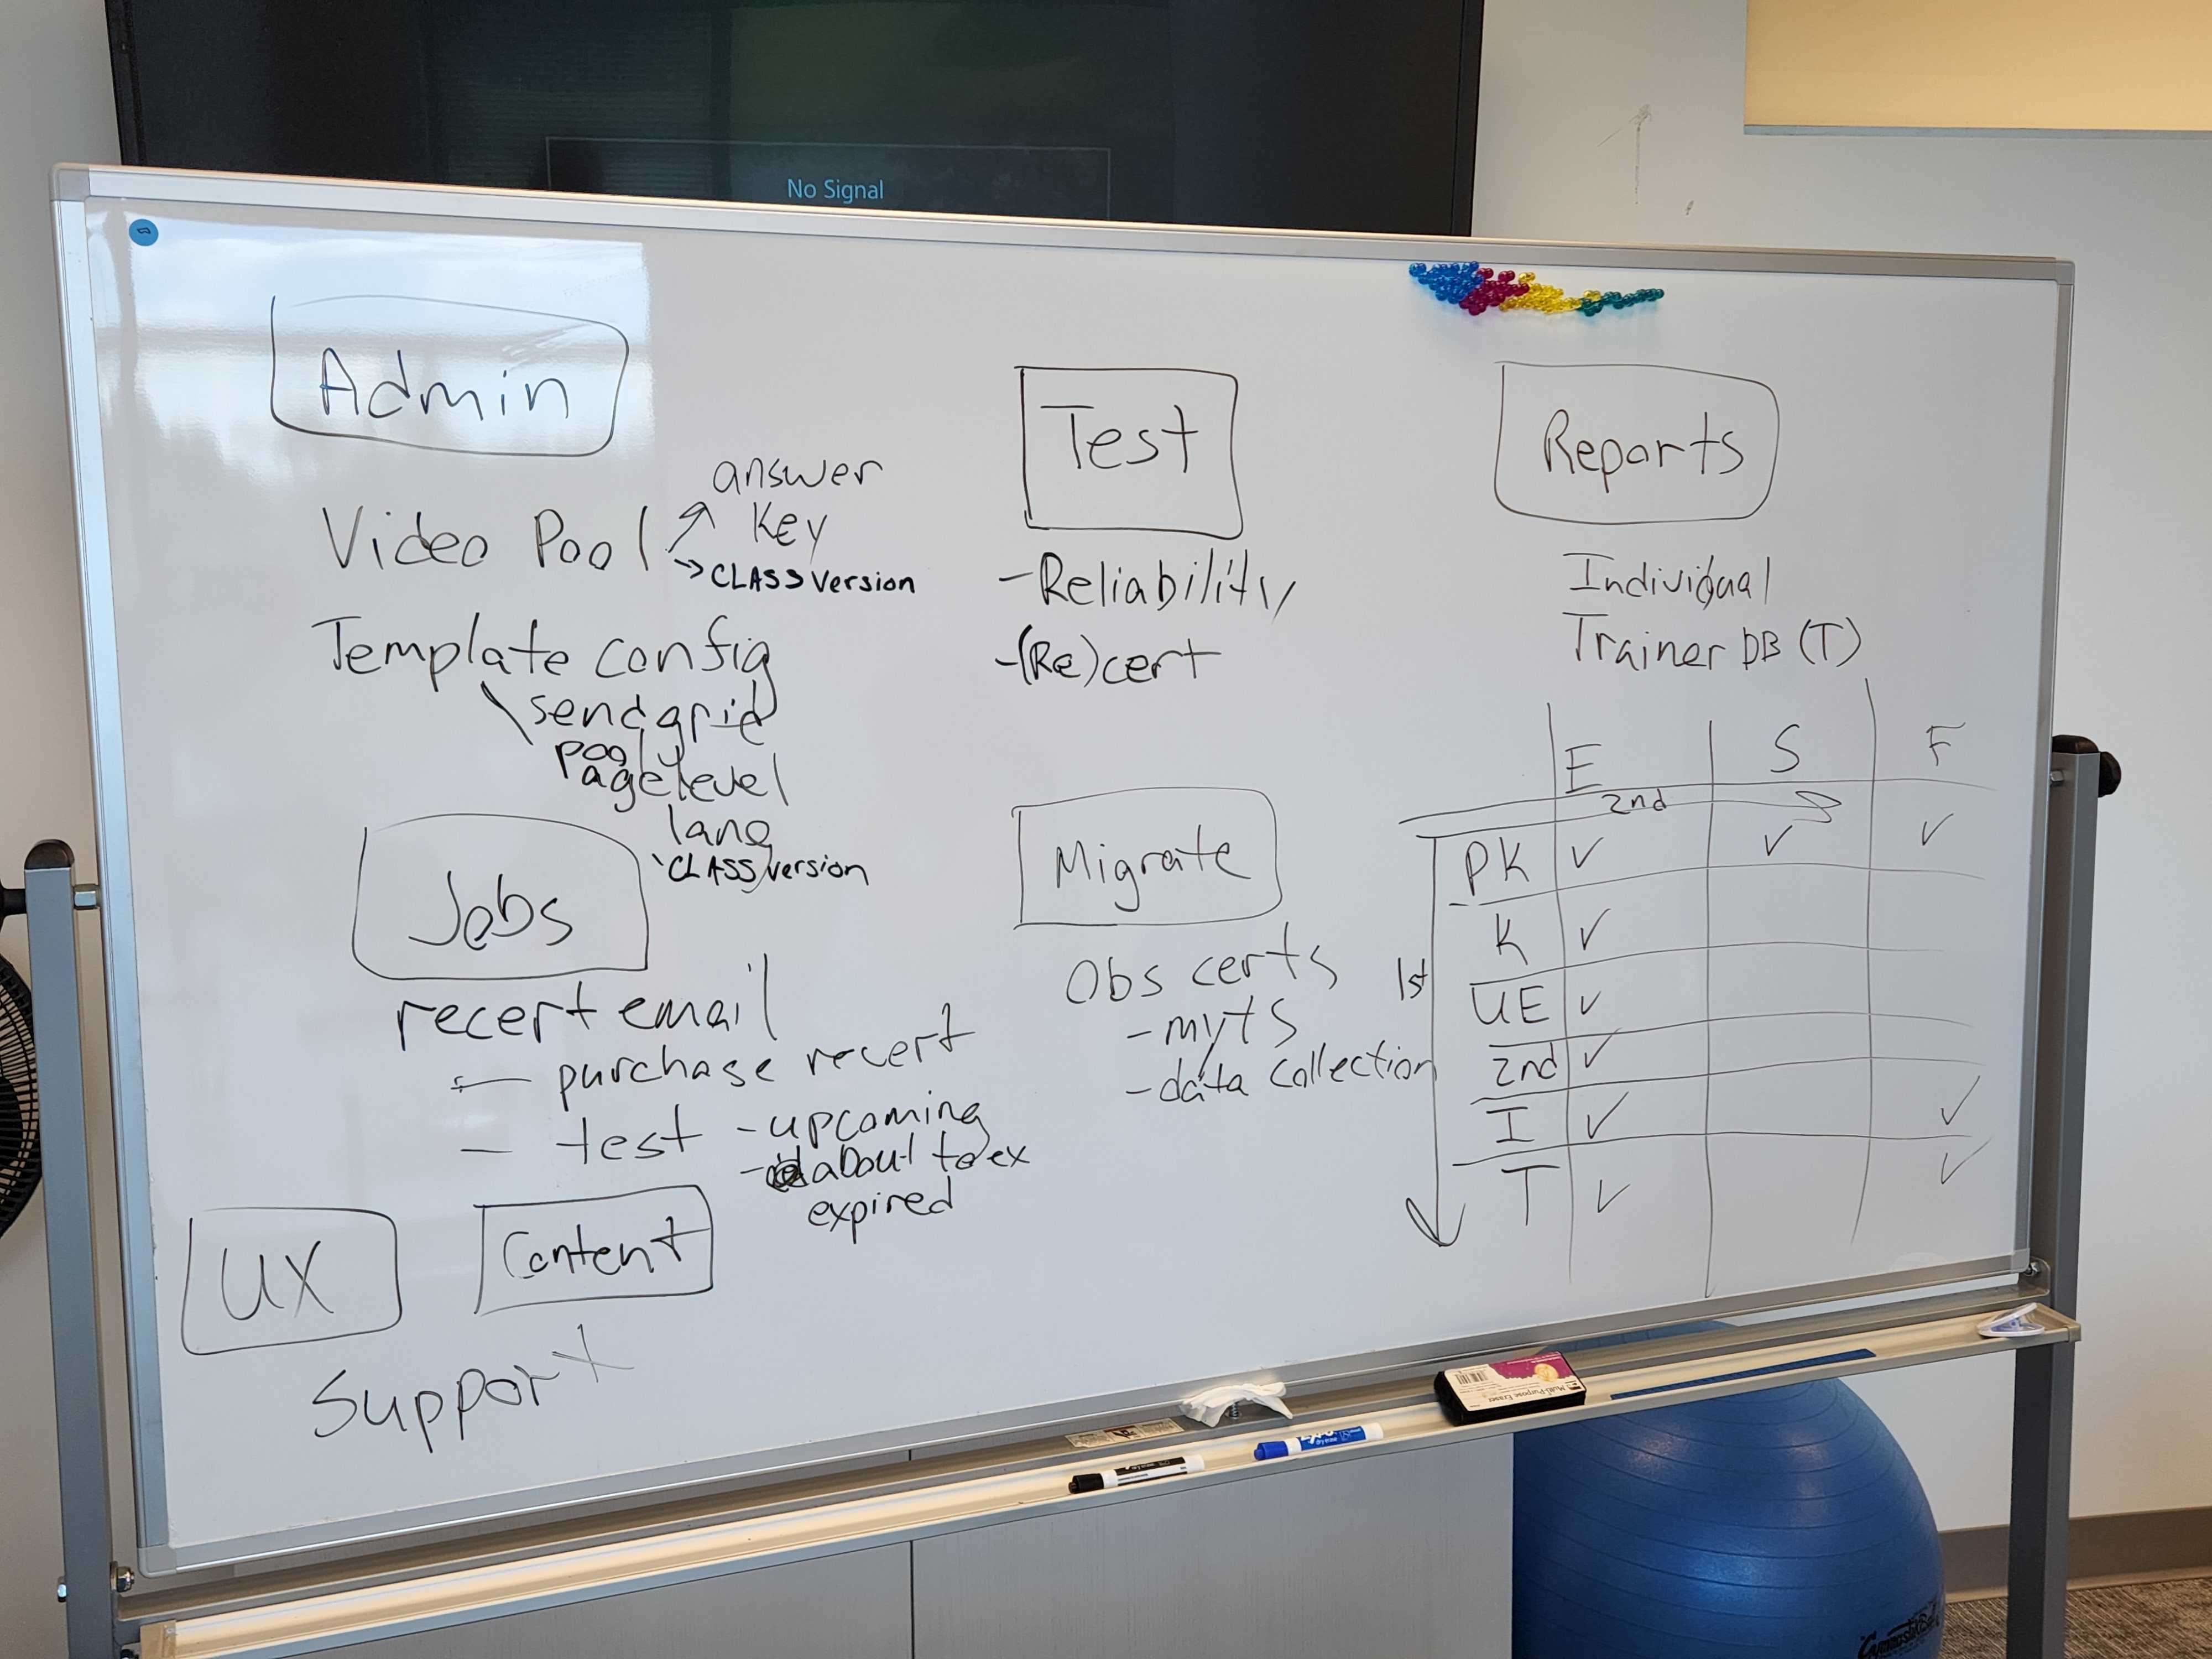 No Signal
Admin
Video Pool
answer
key
→ CLASS version
Template config
sendgrid
pool
page level
lang
CLASS version
Jobs
recert email
— purchase recert
— test - upcoming
- about to ex
expired
UX
Content
Support
Test
- Reliability
- (Re)cert
Migrate
Obs certs
- myTS
- data collection
Reports
Individual
Trainer DB (T)
E S F
2nd
1st
PK ✓ ✓ ✓
K ✓
UE ✓
2nd ✓
I ✓ ✓
T ✓ ✓
Multi-Purpose Eraser